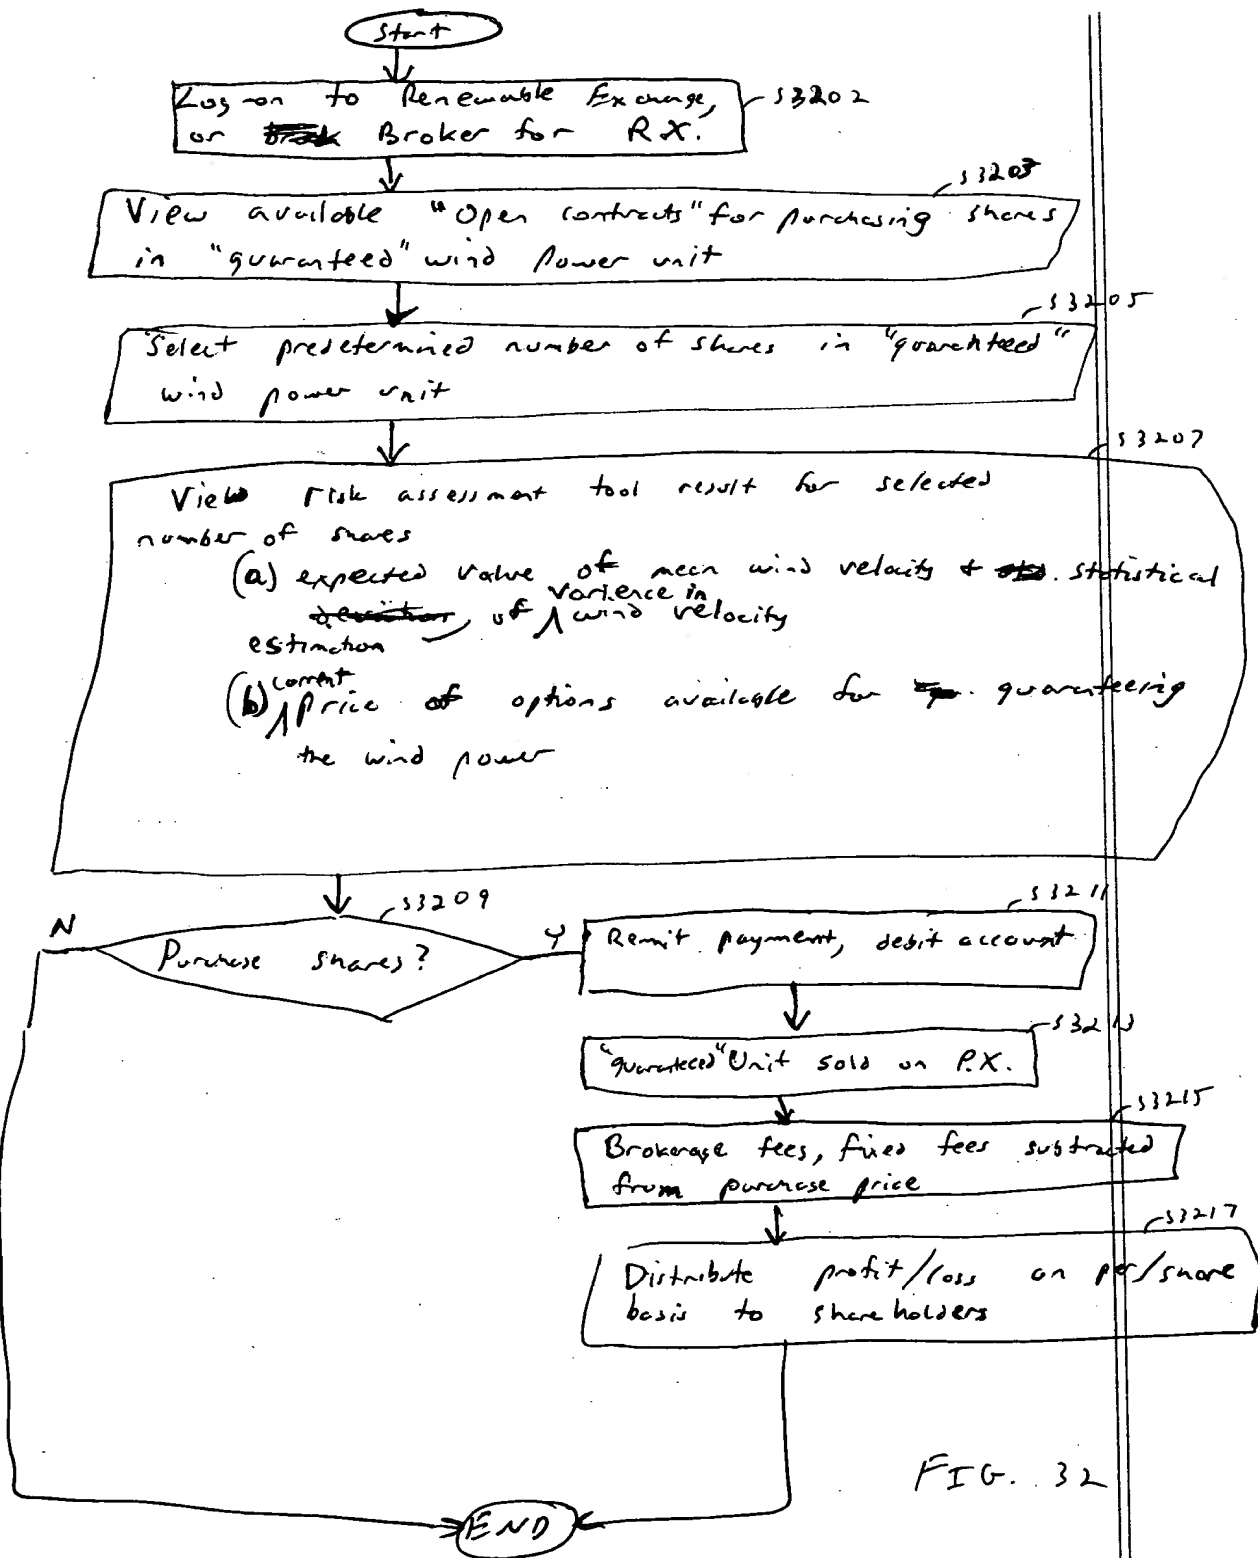 Start
Log-on to Renewable Exchange,
or Broker for R.X.
S3202
S3203
View available "Open contracts" for purchasing shares
in "guaranteed" wind power unit
S3205
Select predetermined number of shares in "guaranteed"
wind power unit
S3207
View risk assessment tool result for selected
number of shares
(a) expected value of mean wind velocity & statistical
estimation of varience in wind velocity
(b) current price of options available for guaranteeing
the wind power
S3209
N
Purchase shares?
Y
S3211
Remit payment, debit account
S3213
"guaranteed" Unit sold on P.X.
S3215
Brokerage fees, fixed fees subtracted
from purchase price
S3217
Distribute profit/loss on per/share
basis to shareholders
END
FIG. 32